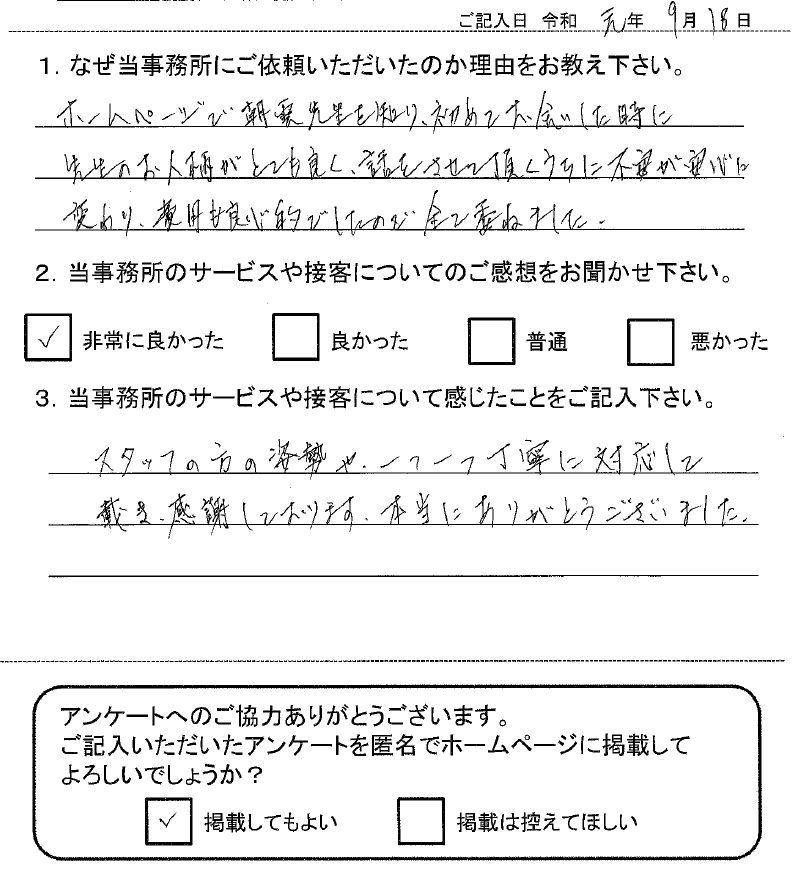 ご記入日 令和 元年 9月18日
1. なぜ当事務所にご依頼いただいたのか理由をお教え下さい。
ホームページで朝雲先生を知り、初めてお会いした時に
先生のお人柄がとても良く、話をさせて頂くうちに不安が安心に
変わり、費用も良心的でしたので全て委ねました。
2. 当事務所のサービスや接客についてのご感想をお聞かせ下さい。
✓ 非常に良かった 良かった 普通 悪かった
3. 当事務所のサービスや接客について感じたことをご記入下さい。
スタッフの方の姿勢や、一つ一つ丁寧に対応して
戴き、感謝しております。本当にありがとうございました。
アンケートへのご協力ありがとうございます。
ご記入いただいたアンケートを匿名でホームページに掲載して
よろしいでしょうか？
✓ 掲載してもよい 掲載は控えてほしい